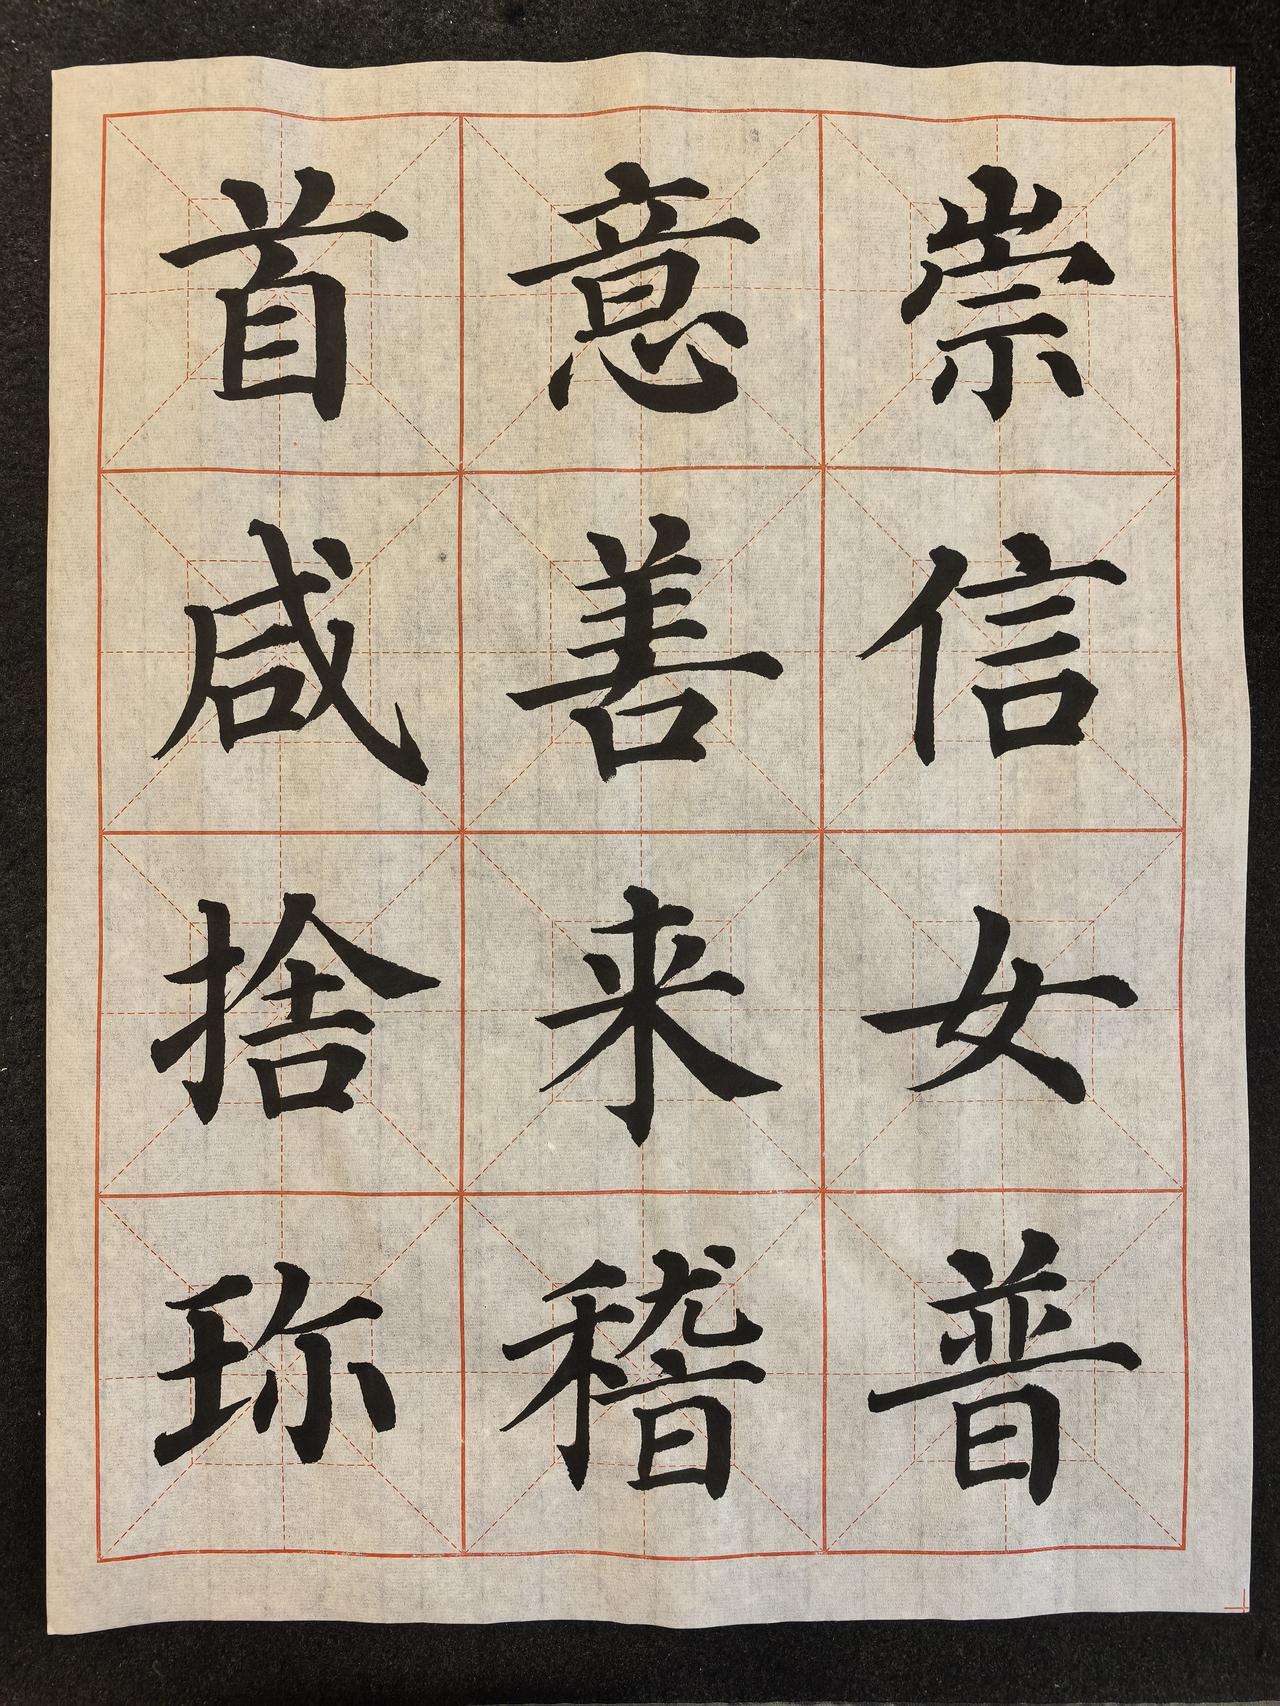 崇信女普
意善来稽
首咸捨珎